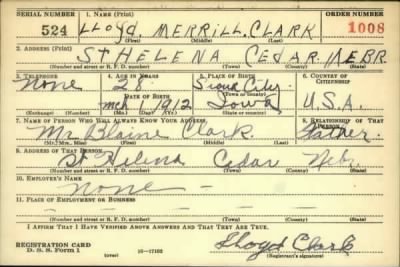 SERIAL NUMBER 1. NAME (Print) ORDER NUMBER
524 LLOYD. MERRILL. CLARK 1008
(First) (Middle) (Last)
2. ADDRESS (Print)
ST HELENA CEDAR. NEBR
(Number and street or R. F. D. number) (Town) (County) (State)
3. TELEPHONE 4. AGE IN YEARS 5. PLACE OF BIRTH 6. COUNTRY OF CITIZENSHIP
None 28 Sioux City.
DATE OF BIRTH (Town or county)
mch 1 1912 Iowa U.S.A.
(Exchange) (Number) (Mo.) (Day) (Yr.) (State or country)
7. NAME OF PERSON WHO WILL ALWAYS KNOW YOUR ADDRESS 8. RELATIONSHIP OF THAT PERSON
Mr. Blaine Clark. Father.
(Mr., Mrs., Miss) (First) (Middle) (Last)
9. ADDRESS OF THAT PERSON
St Helena Cedar Neb.
(Number and street or R. F. D. number) (Town) (County) (State)
10. EMPLOYER'S NAME
None —
11. PLACE OF EMPLOYMENT OR BUSINESS
— —
(Number and street or R. F. D. number) (Town) (County) (State)
I AFFIRM THAT I HAVE VERIFIED ABOVE ANSWERS AND THAT THEY ARE TRUE.
REGISTRATION CARD
D. S. S. Form 1 16—17105 Lloyd Clark
(over) (Registrant's signature)